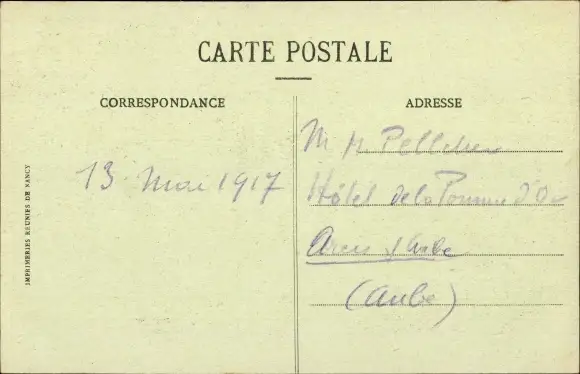 CARTE POSTALE
CORRESPONDANCE
ADRESSE
13 Mai 1917
M. H.
Hôtel de la Pomme d'Or
Arcis s/ Aube
(Aube)
IMPRIMERIES REUNIES DE NANCY